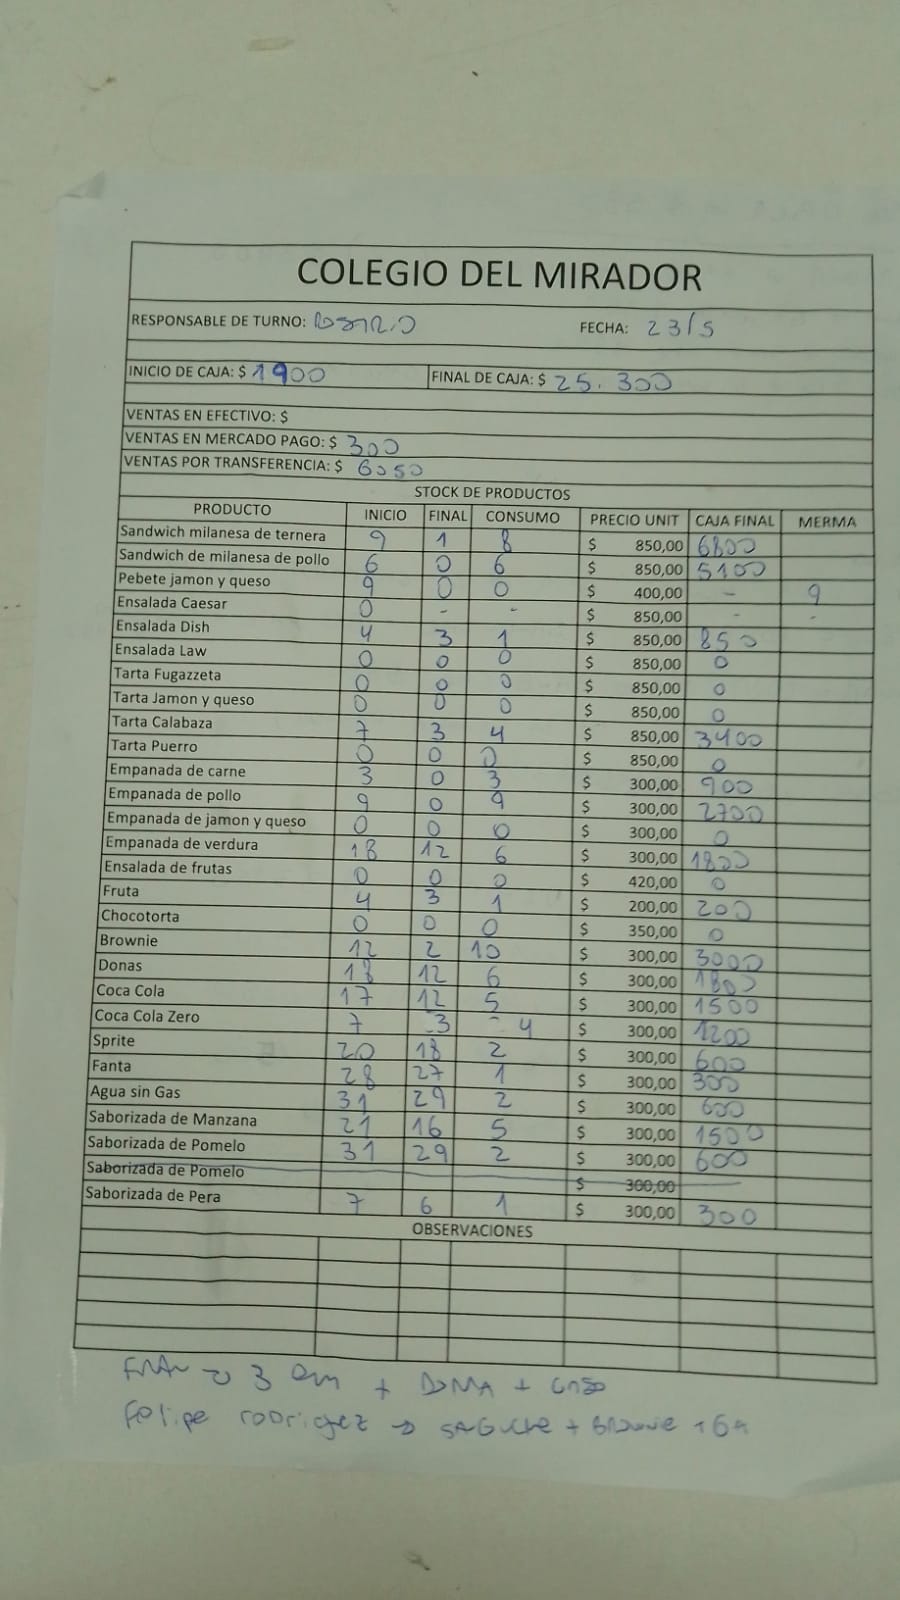 COLEGIO DEL MIRADOR
RESPONSABLE DE TURNO: FECHA: 23/5
INICIO DE CAJA: $ 1900 FINAL DE CAJA: $ 25.300
VENTAS EN EFECTIVO: $
VENTAS EN MERCADO PAGO: $ 300
VENTAS POR TRANSFERENCIA: $ 6050
STOCK DE PRODUCTOS
PRODUCTO INICIO FINAL CONSUMO PRECIO UNIT CAJA FINAL MERMA
Sandwich milanesa de ternera 9 1 8 $ 850,00 6800
Sandwich de milanesa de pollo 6 0 6 $ 850,00 5100
Pebete jamon y queso 9 0 0 $ 400,00 - 9
Ensalada Caesar 0 - - $ 850,00 - -
Ensalada Dish 4 3 1 $ 850,00 850
Ensalada Law 0 0 0 $ 850,00 0
Tarta Fugazzeta 0 0 0 $ 850,00 0
Tarta Jamon y queso 0 0 0 $ 850,00 0
Tarta Calabaza 7 3 4 $ 850,00 3400
Tarta Puerro 0 0 0 $ 850,00 0
Empanada de carne 3 0 3 $ 300,00 900
Empanada de pollo 9 0 9 $ 300,00 2700
Empanada de jamon y queso 0 0 0 $ 300,00 0
Empanada de verdura 18 12 6 $ 300,00 1800
Ensalada de frutas 0 0 0 $ 420,00 0
Fruta 4 3 1 $ 200,00 200
Chocotorta 0 0 0 $ 350,00 0
Brownie 12 2 10 $ 300,00 3000
Donas 18 12 6 $ 300,00 1800
Coca Cola 17 12 5 $ 300,00 1500
Coca Cola Zero 7 3 - 4 $ 300,00 1200
Sprite 20 18 2 $ 300,00 600
Fanta 28 27 1 $ 300,00 300
Agua sin Gas 31 29 2 $ 300,00 600
Saborizada de Manzana 21 16 5 $ 300,00 1500
Saborizada de Pomelo 31 29 2 $ 300,00 600
Saborizada de Pomelo $ 300,00
Saborizada de Pera 7 6 1 $ 300,00 300
OBSERVACIONES
3 + +
Felipe rodrigez → + Brownie +